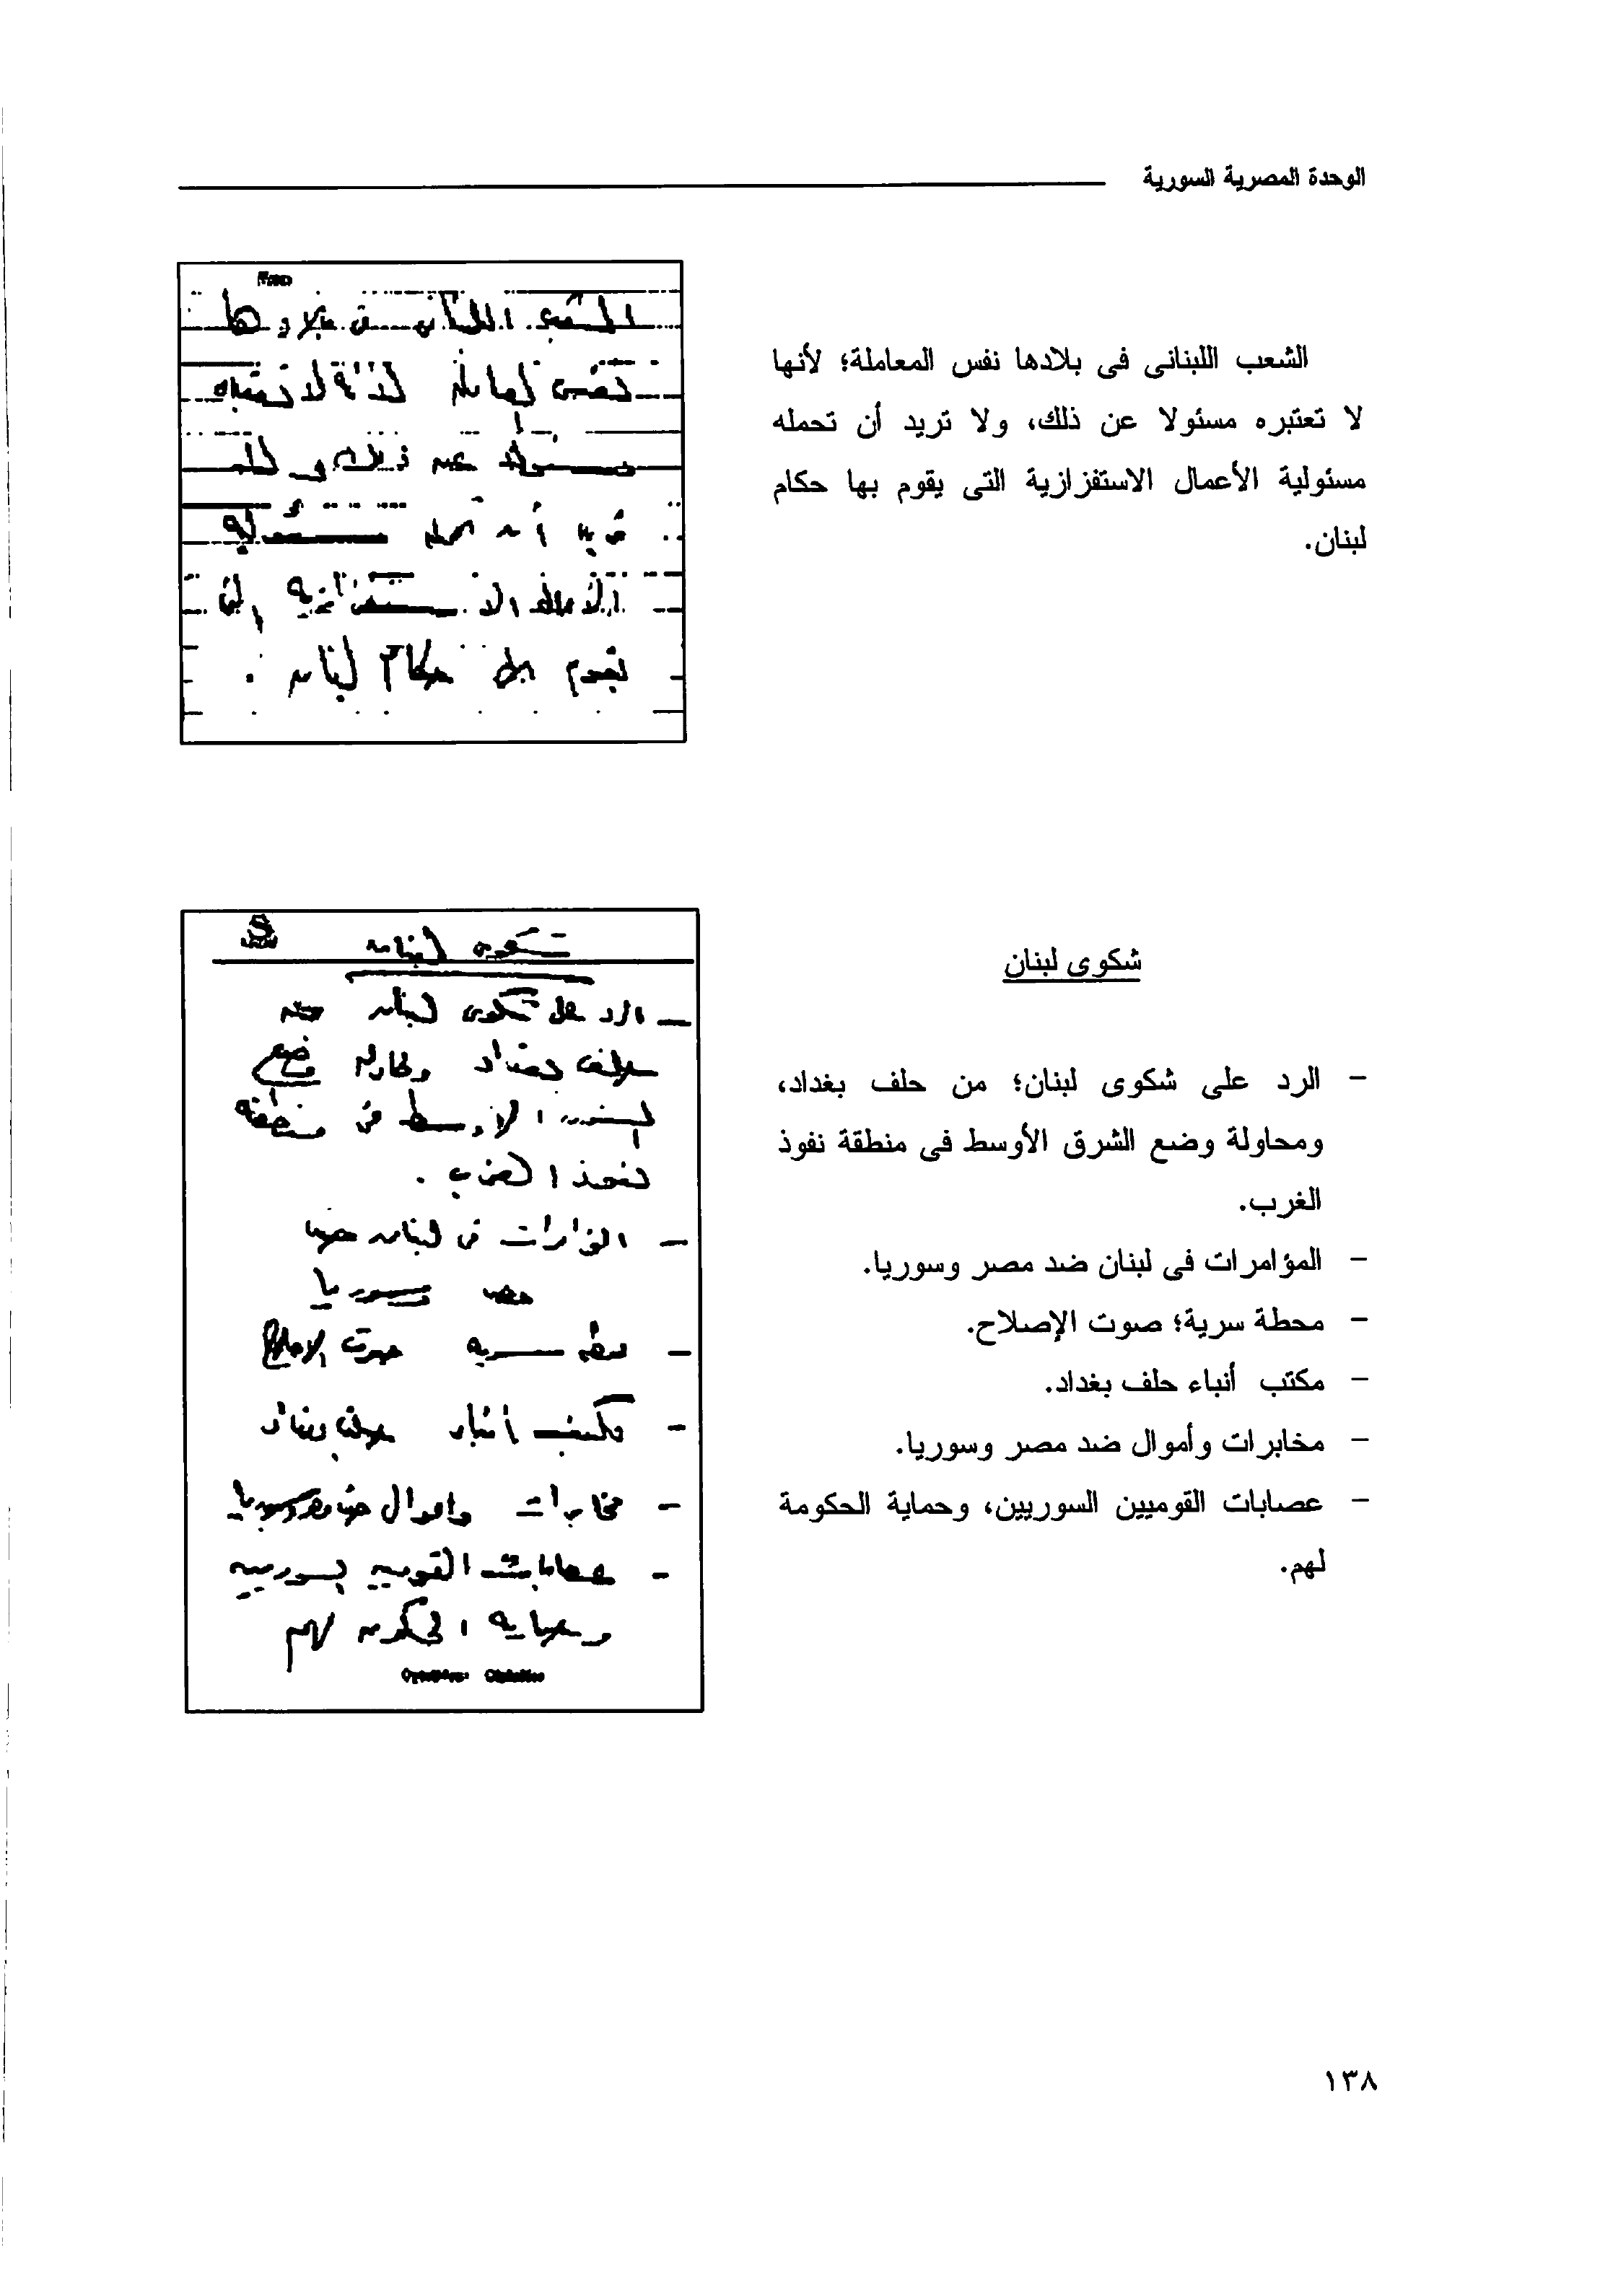 الوحدة المصرية السورية
الشعب اللبنانى فى بلادها نفس المعاملة؛ لأنها
لا تعتبره مسئولا عن ذلك، ولا تريد أن تحمله
مسئولية الأعمال الاستفزازية التى يقوم بها حكام
لبنان.
الشعب اللبنانى فى بلادها
نفس المعاملة لانها لا تعتبره
مسئولا عن ذلك ولا
تريد أن تحمله مسئولية
الاعمال الاستفزازية التى
يقوم بها حكام لبنان .
شكوى لبنان
- الرد على شكوى لبنان؛ من حلف بغداد،
ومحاولة وضع الشرق الأوسط فى منطقة نفوذ
الغرب.
- المؤامرات فى لبنان ضد مصر وسوريا.
- محطة سرية؛ صوت الإصلاح.
- مكتب أنباء حلف بغداد.
- مخابرات وأموال ضد مصر وسوريا.
- عصابات القوميين السوريين، وحماية الحكومة
لهم.
شكوى لبنان
- الرد على شكوى لبنان من
حلف بغداد ومحاولة وضع
الشرق الاوسط فى منطقة
نفوذ الغرب .
- المؤامرات فى لبنان ضد
مصر وسوريا
- محطة سرية صوت الاصلاح
- مكتب أنباء حلف بغداد
- مخابرات واموال ضد مصر وسوريا
- عصابات القوميين السوريين
وحماية الحكومة لهم
١٣٨